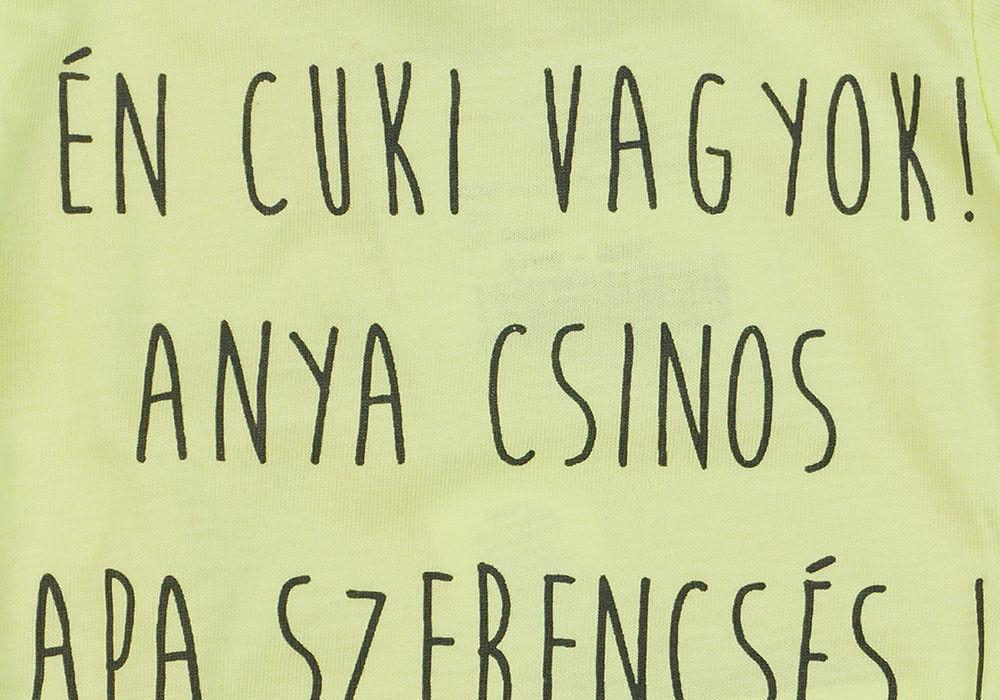 ÉN CUKI VAGYOK!
ANYA CSINOS
APA SZERENCSÉS !